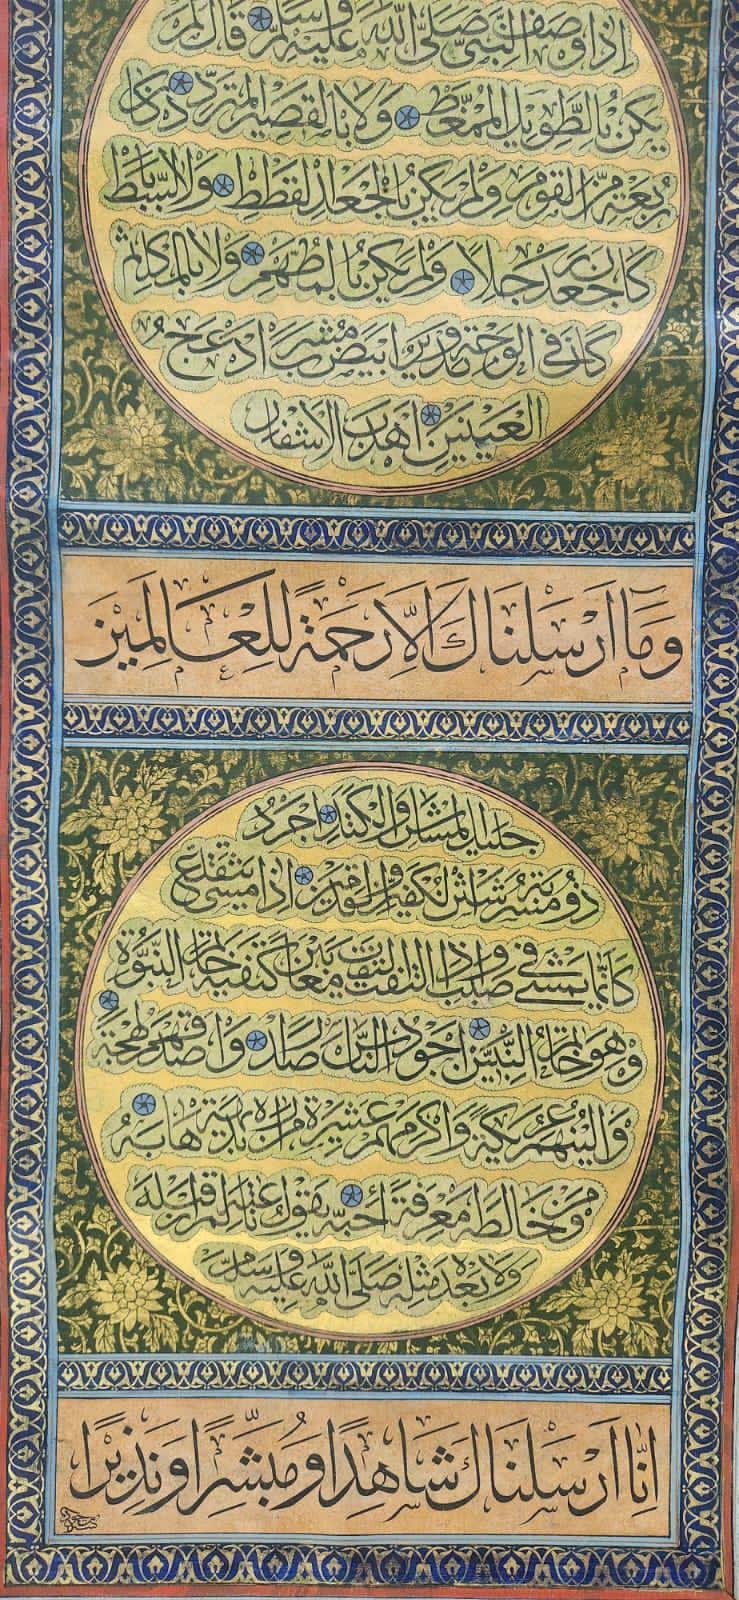 اذا وصف النبى صلى الله عليه وسلم قال لم
يكن بالطويل الممغط ولا بالقصير المتردد وكان
ربعة من القوم ولم يكن بالجعد القطط ولا بالسباط
كان جعدا رجلا ولم يكن بالمطهم ولا بالمكلثم
كان فى الوجه تدوير ابيض مشرب ادعج
العينين اهدب الاشفار
وَمَا اَرْسَلْنَاكَ اِلَّا رَحْمَةً لِلْعَالَمِينَ
جليل المشاش والكتد اجرد
ذو مسربة شثن الكفين والقدمين اذا مشى يتقلع
كانما يمشى فى صبب واذا التفت التفت معا بين كتفيه خاتم النبوة
وهو خاتم النبيين اجود الناس صدرا واصدقهم لهجة
والينهم عريكة واكرمهم عشيرة من راه بديهة هابه
ومن خالطه معرفة احبه يقول ناعته لم ار قبله
ولا بعده مثله صلى الله عليه وسلم
اِنَّا اَرْسَلْنَاكَ شَاهِدًا وَمُبَشِّرًا وَنَذِيرًا